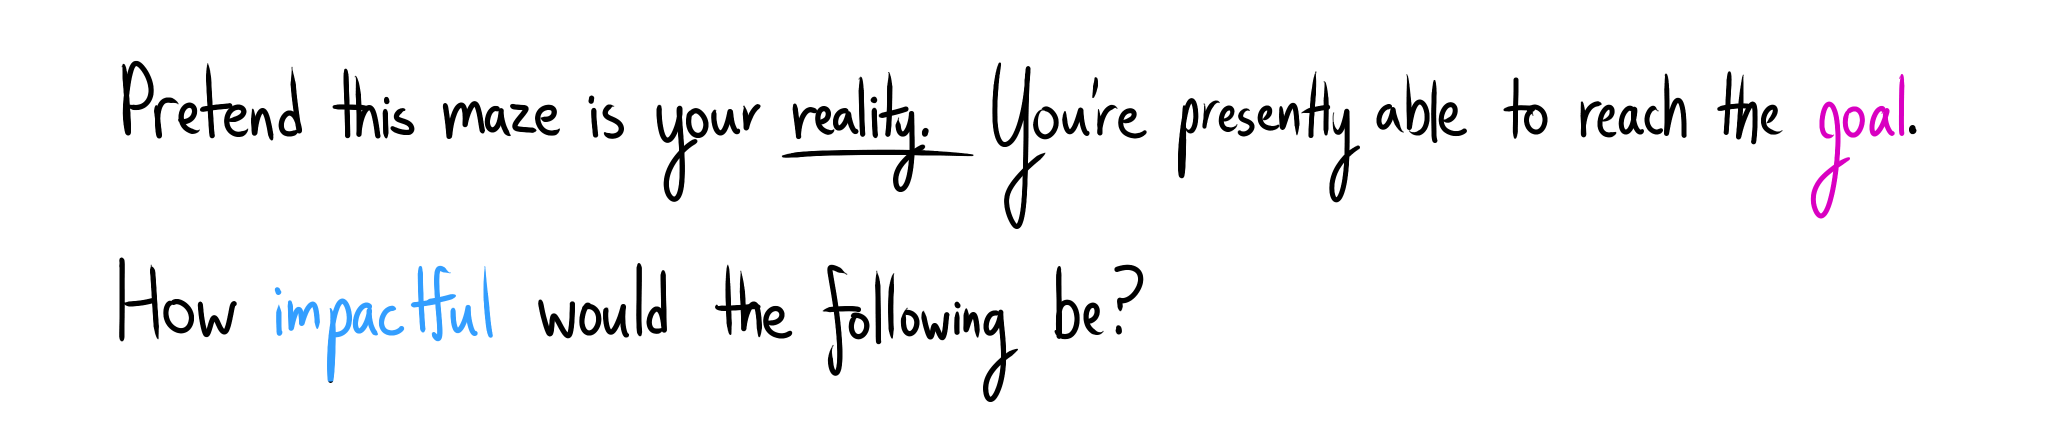 Pretend this maze is your reality. You're presently able to reach the goal.
How impactful would the following be?